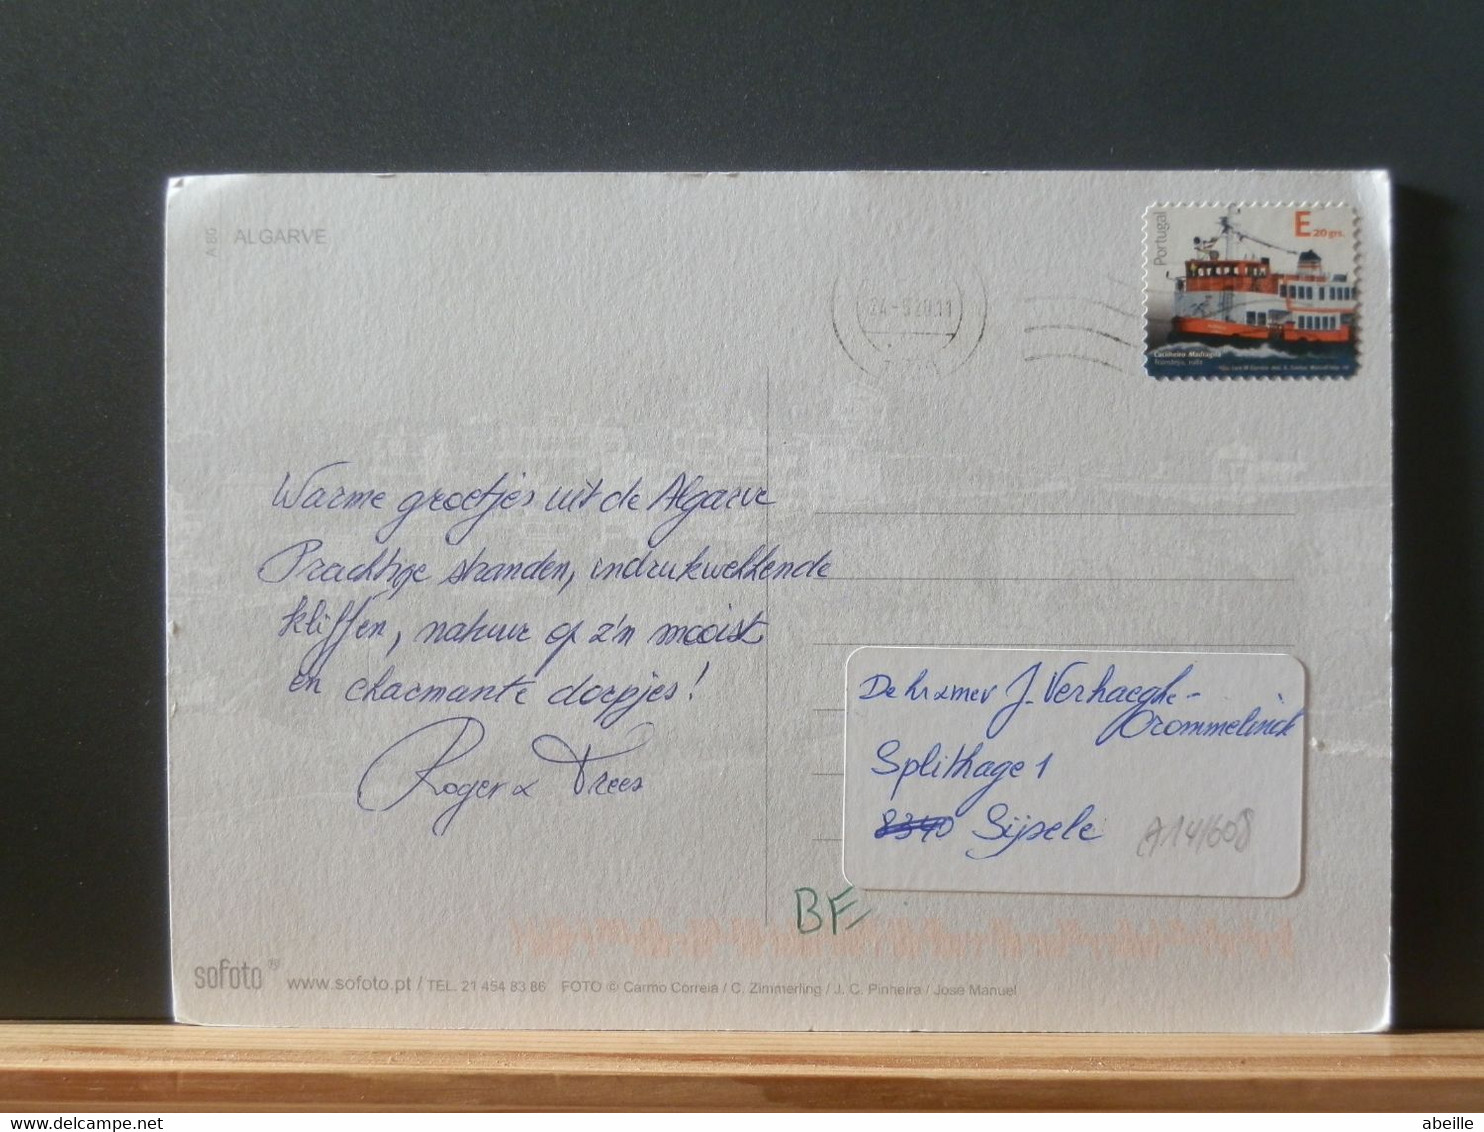 A 80 ALGARVE
Portugal
E 20 grs.
24-5 2011
Cacilheiro Madragoa
Warme groetjes uit de Algarve
Prachtige stranden, indrukwekkende
kliffen, natuur op z'n mooist
en charmante dorpjes!
Roger & Trees
De hr & mev J. Verhaeghe-
Crommelinck
Splithage 1
8340 Sijsele
A141/608
BE
sofoto ® www.sofoto.pt / TEL. 21 454 83 86 FOTO © Carmo Correia / C. Zimmerling / J. C. Pinheira / José Manuel
abeille